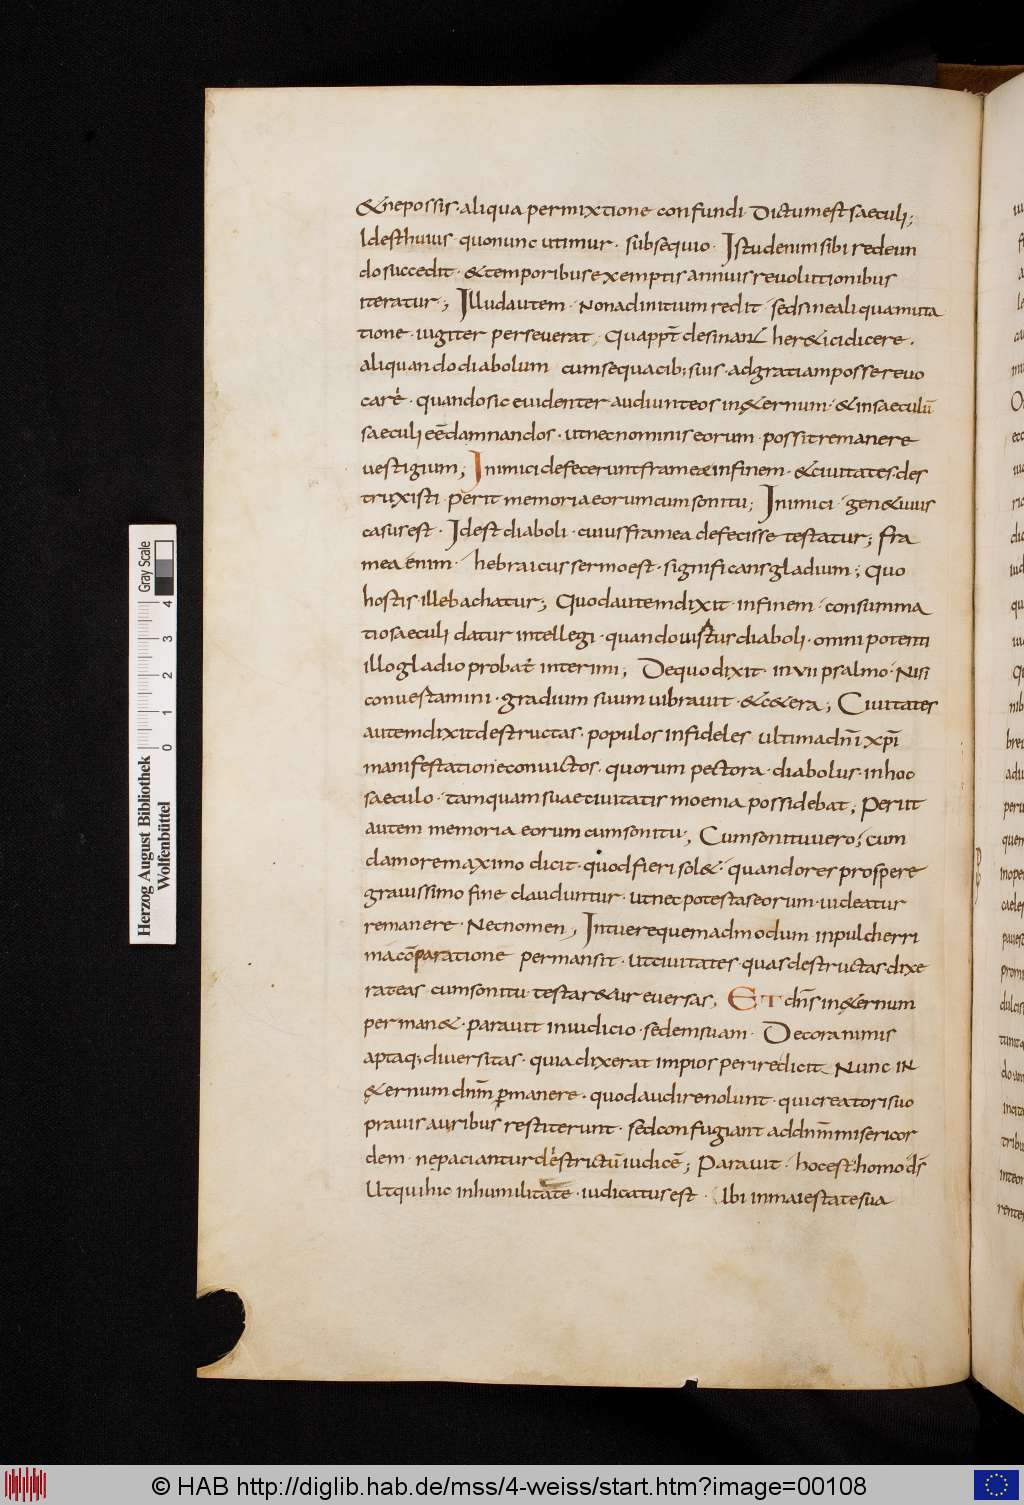 &nepossis· aliqua permixtione confundi· Dictumest saeculi;
Idesthuius quonunc utimur· subsequio· Istudenimsibi redeun
dosuccedit· &temporibusexemptis annuisreuolutionibus
iteratur; Illudautem· Nonadinitium redit· sedsinealiquamuta
tione· iugiter perseuerat; Quapp̄t desinant her&icidicere·
aliquandodiabolum cumsequacib; suis· adgratiamposserevo
care· quandosic euidenter audiunteos inę&ernum· &insaeculū
saeculi eēdamnandos· utnecnominis eorum· possitremanere
uestigium; Inimicidefeceruntframeæinfinem· &ciuitates·des
truxisti· perit memoriaeorumcumsonitu; Inimici· gen&iuus
casusest· Idest diaboli· cuiusframea defecisse testatur; fra
mea enim· hebraicussermoest· significansgladium; Quo
hostis illebachatur; Quodautemdixit· infinem· consumma
tiosaeculi datur intellegi· quandouirtus diaboli· omnipotenti
illogladio probat́ interimi; Dequodixit· inVII psalmo· Nisi
conuestamini· gradium suum uibrauit· &c&era; Ciuitates
autemdixitdestructas· populos infideles ultimadn̄i xp̄i
manifestationeconuictos· quorum pectora· diabolus· inhoc
saeculo· tamquamsuaeciuitatis moenia possidebat; Periit
autem memoria eorumcumsonitu; Cumsonituuero; cum
clamoremaximo dicit· quodfieri sol&· quandores prospere
grauissimo fine clauduntur· utnecpotestaseorum· uideatur
remanere· Necnomen; Intuerequemadmodum inpulcherri
macōparatione permansit· utciuitates· quasdestructas·dixe
rateas cumsonitu testar&ur euersas; ET dn̄s inę&ernum
perman&· parauit iniudicio· sedemsuam· Decoranimis
aptaq; diuersitas· quiadixerat impios periredicit Nunc IN
ę&ernum dnm̄ p̱manere· quodaudirenolunt· quicreatorisuo
prauis auribus restiterunt· sedconfugiant addnm̄misericor
dem· nepaciantur destrictū iudicē; Parauit· hocest· homo ds̄
Utquihic inhumilitate· iudicatusest· Ibi inmaiestatesua
Herzog August Bibliothek
Wolfenbüttel
0 1 2 3 4
Gray Scale
© HAB http://diglib.hab.de/mss/4-weiss/start.htm?image=00108